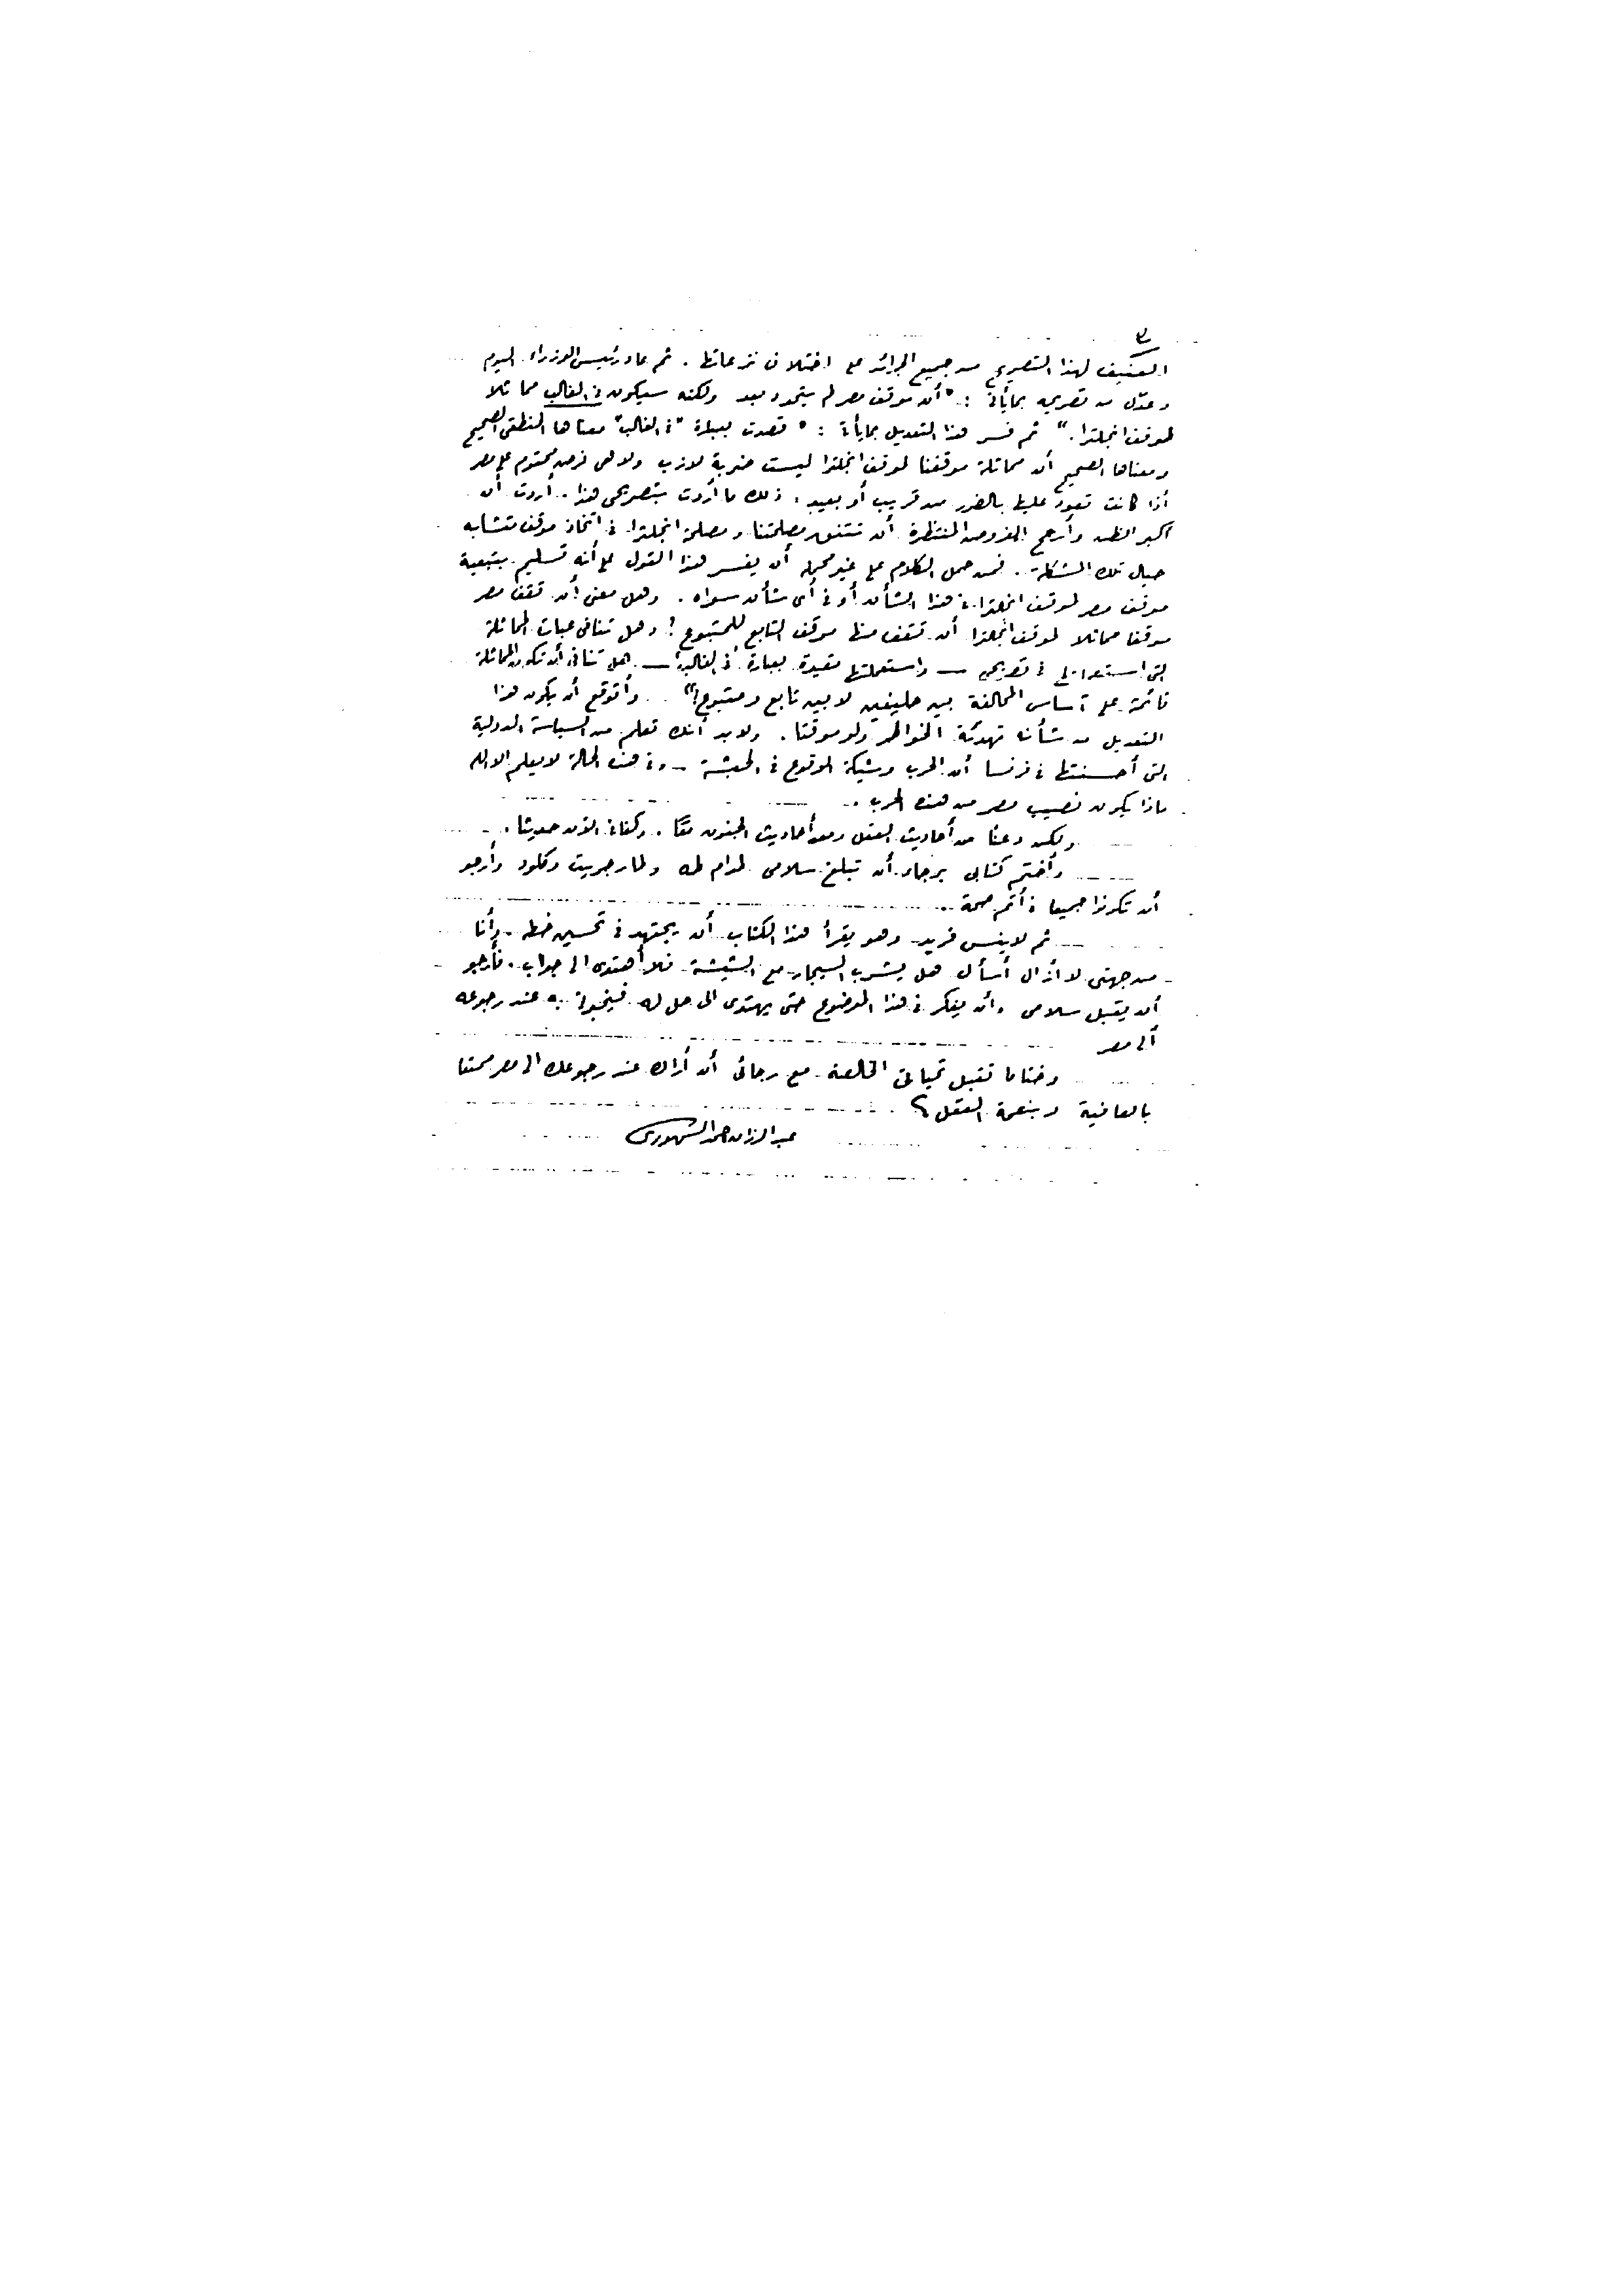 ٣
العنيف لهذا التصريح من جميع الجرائد على اختلاف نزعاتها . ثم عاد رئيس الوزراء اليوم
وعدّل من تصريحه بما يأتى : " أن موقف مصر لم يتحدد بعد ولكنه سيكون فى الغالب مماثلا
لموقف انجلترا . " ثم فسر هذا التعديل بما يأتى : " قصدت بعبارة " فى الغالب " معناها المنطقى الصحيح
ومعناها الصحيح أن مماثلة موقفنا لموقف انجلترا ليست ضربة لازب ولا هى فرض محتوم على مصر
أذا كانت تعود عليها بالضرر من قريب أو بعيد . ذلك ما أردت بتصريحى هذا . أردت أن
أكبر الظن وأرجح الفروض المنتظرة أن تتفق مصلحتنا ومصلحة انجلترا فى اتخاذ موقف متشابه
حيال تلك المشكلة . فمن حمل الكلام على غير محمله أن يفسر هذا القول على أنه تسليم بتبعية
موقف مصر لموقف انجلترا فى هذا الشأن أو فى أى شأن سواه . وهل معنى أن تقف مصر
موقفا مماثلا لموقف انجلترا أن تقف منها موقف التابع للمتبوع ! وهل تنافى عبارت المماثلة
التى استعملتها فى تصريحى – واستعملتها مقيدة بعبارة " فى الغالب " – هل تنافى أن تكون المماثلة
قائمة على أساس المحالفة بين حليفين لا بين تابع ومتبوع ! " وأتوقع أن يكون هذا
التعديل من شأنه تهدئة الخواطر ولو موقتا . ولا بد أنك تعلم من السياسة الدولية
التى أحسنتها فى فرنسا أن الحرب وشيكة الوقوع فى الحبشة – وفى هذه الحالة لا يعلم الا الله
ماذا يكون نصيب مصر من هذه الحرب .
ولكن دعنا من أحاديث العقل ومن أحاديث الجنون معًا . وكفانى الآن حديثا .
وأختم كتابى برجاء أن تبلغ سلامى لمدام طه ولمارجريت وكلود وأرجو
أن تكونوا جميعا فى أتم صحة .
ثم لا ينس فريد وهو يقرأ هذا الكتاب أن يجتهد فى تحسين خطه . وأنا
من جهتى لا أزال أسأل هل يشرب السيجار مع الشيشة فلا أهتدى الى جواب . فأرجو
أن يتقبل سلامى وأن يفكر فى هذا الموضوع حتى يهتدى الى حل له فيخبرنى به عند رجوعه
ألى مصر
وختاما تقبل تحياتى الخالصة مع رجائى أن أراك عند رجوعك الى مصر ممتعا
بالعافية وبنعمة العقل
عبد الرزاق أحمد السنهورى